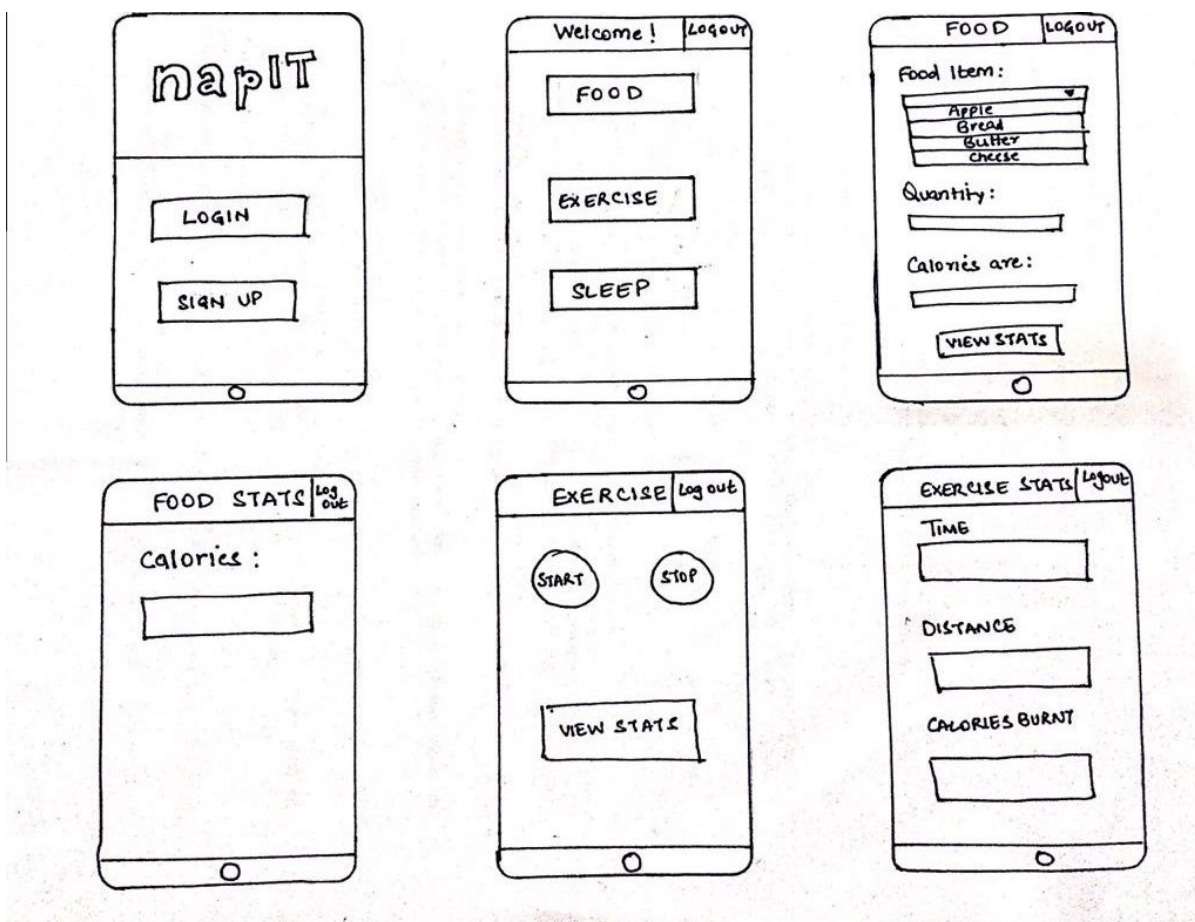 napIT
LOGIN
SIGN UP
Welcome! LOGOUT
FOOD
EXERCISE
SLEEP
FOOD LOGOUT
Food Item:
Apple
Bread
Butter
cheese
Quantity:
Calories are:
VIEW STATS
FOOD STATS Log
out
Calories:
EXERCISE Log out
START STOP
VIEW STATS
EXERCISE STATS Logout
TIME
DISTANCE
CALORIES BURNT